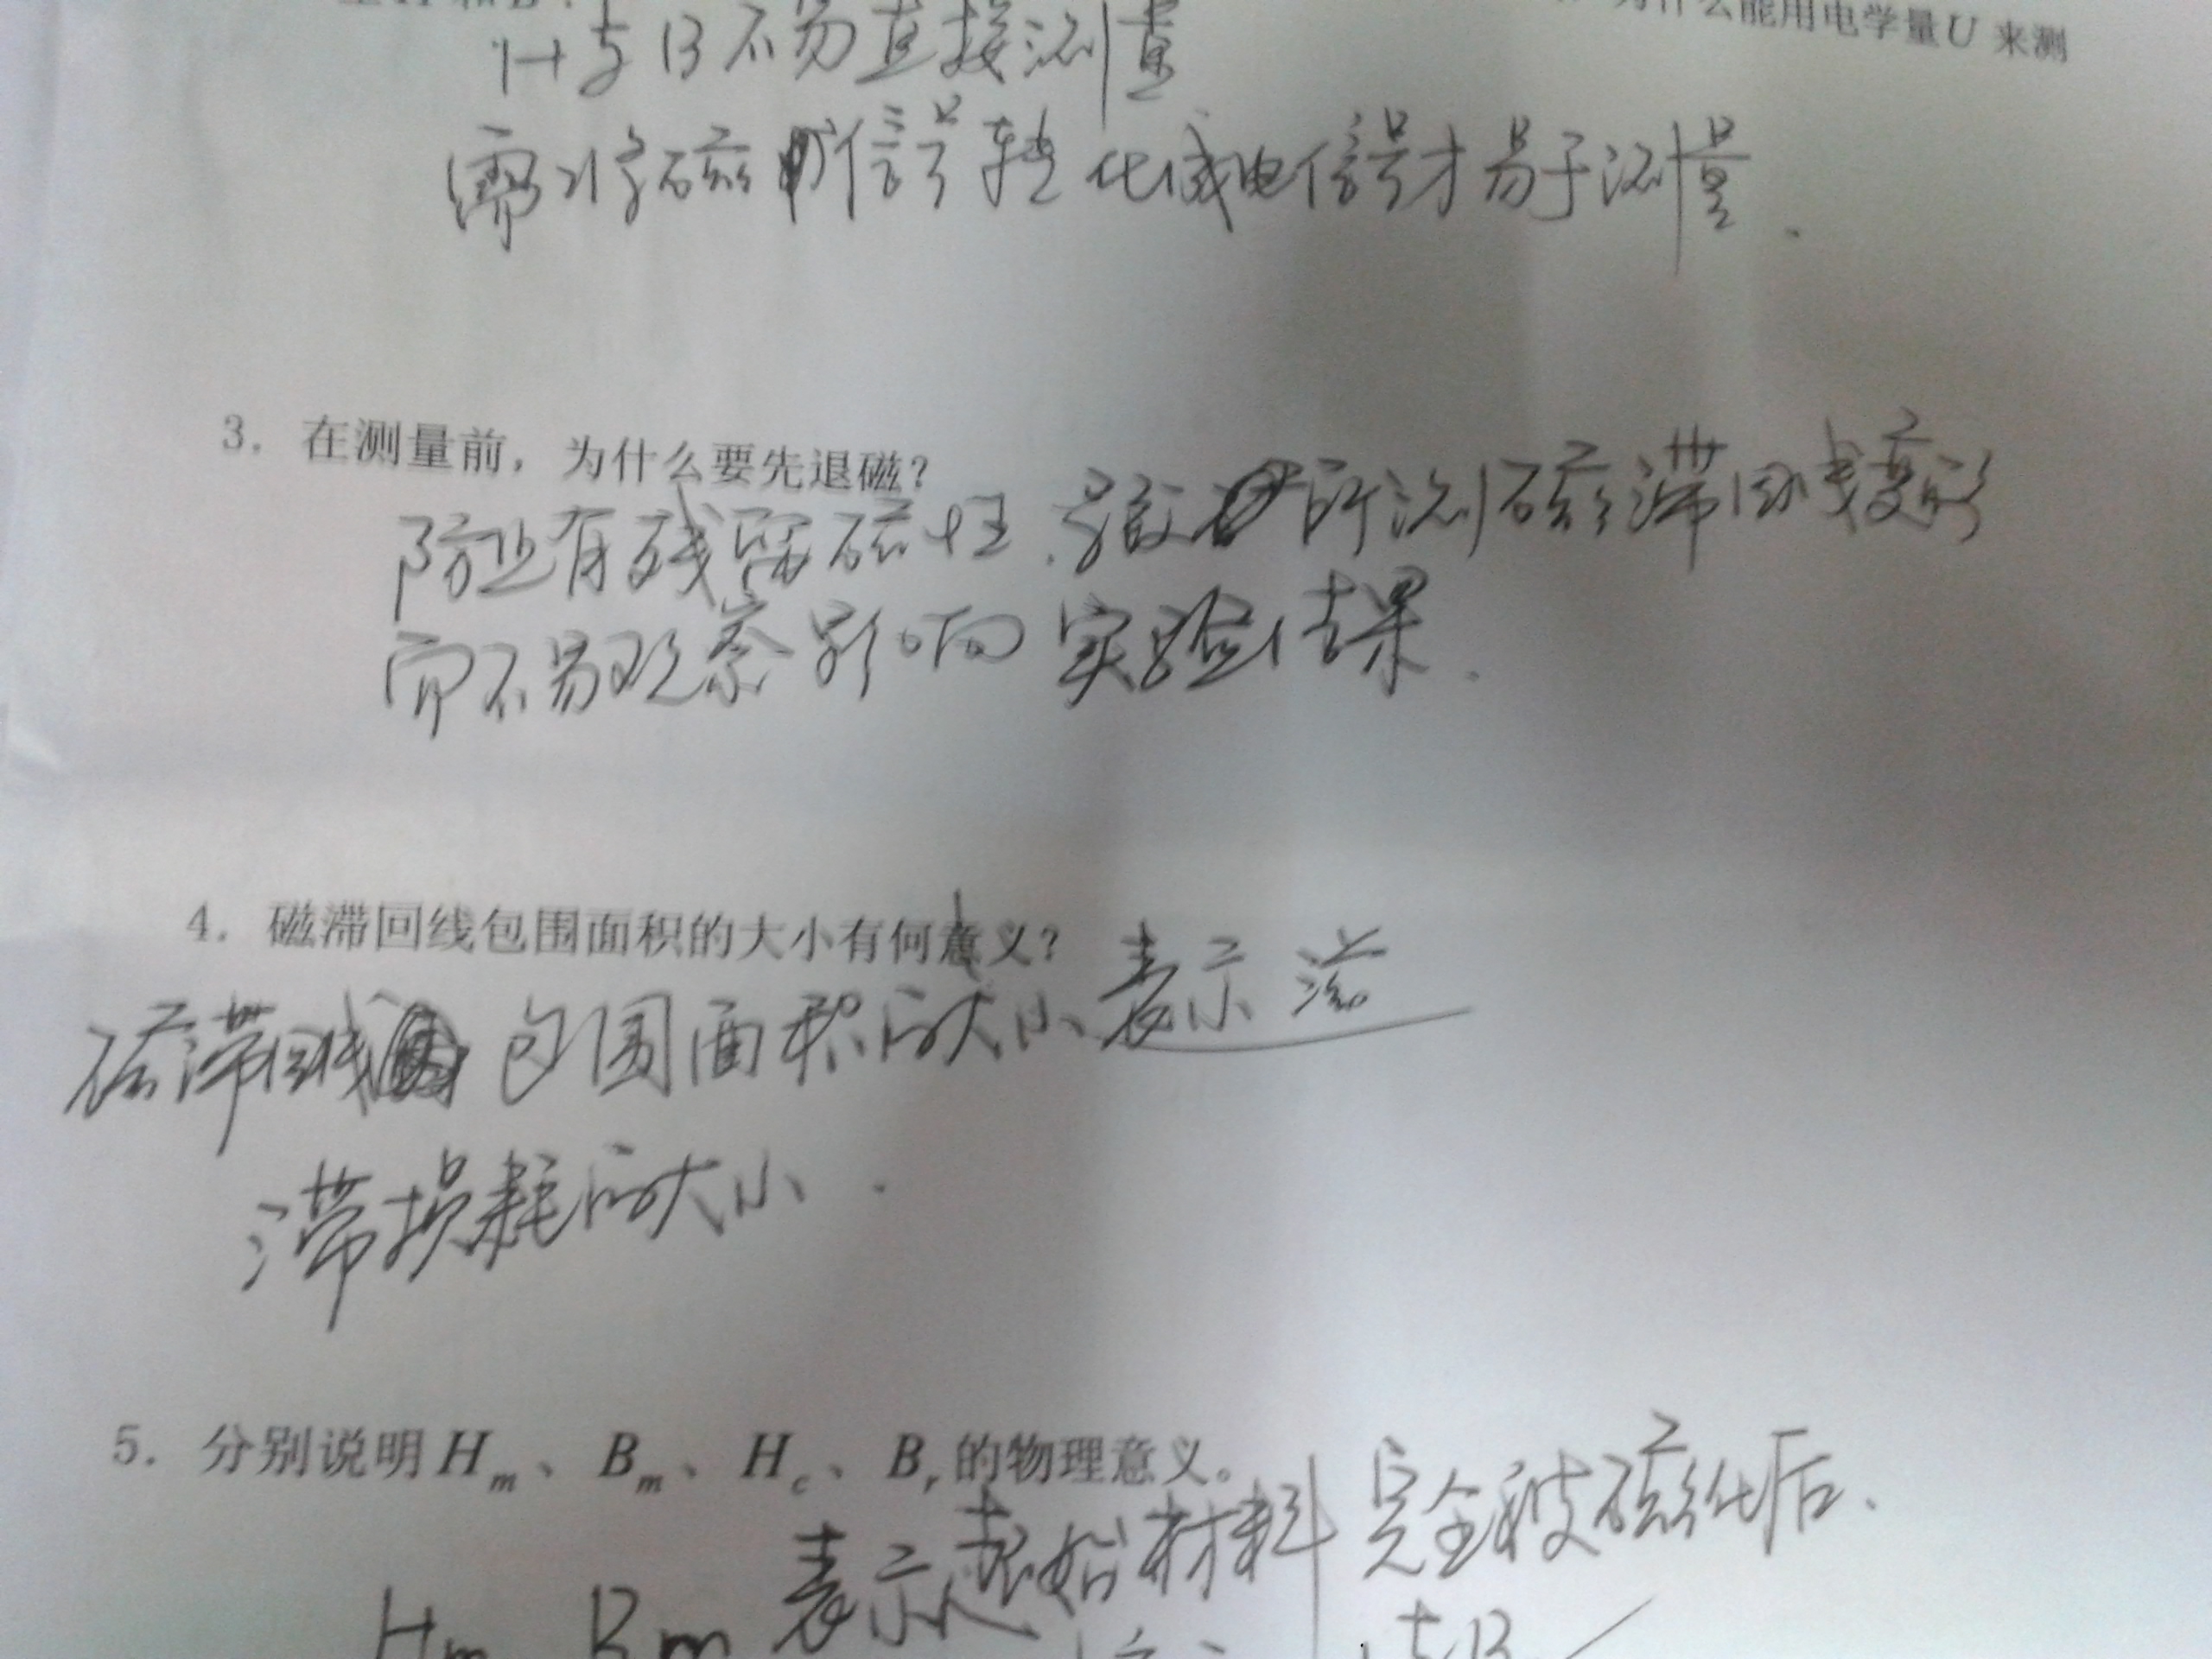 为什么能用电学量U 来测
H与B不易直接测量
需将磁信号转化成电信号才易于测量.
3. 在测量前，为什么要先退磁？
防止有残留磁性.导致所测磁滞回线变形
而不易观察影响实验结果.
4. 磁滞回线包围面积的大小有何意义？
磁滞回线包围面积的大小表示磁
滞损耗的大小.
5. 分别说明Hm、Bm、Hc、Br的物理意义。
表示起始材料完全被磁化后.
Hm Bm